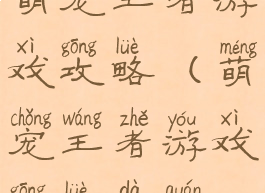 萌宠王者游
xì gōng lüè ( méng
戏攻略(萌
chǒng wáng zhě yóu xì
宠王者游戏
gōng lüè dà quán